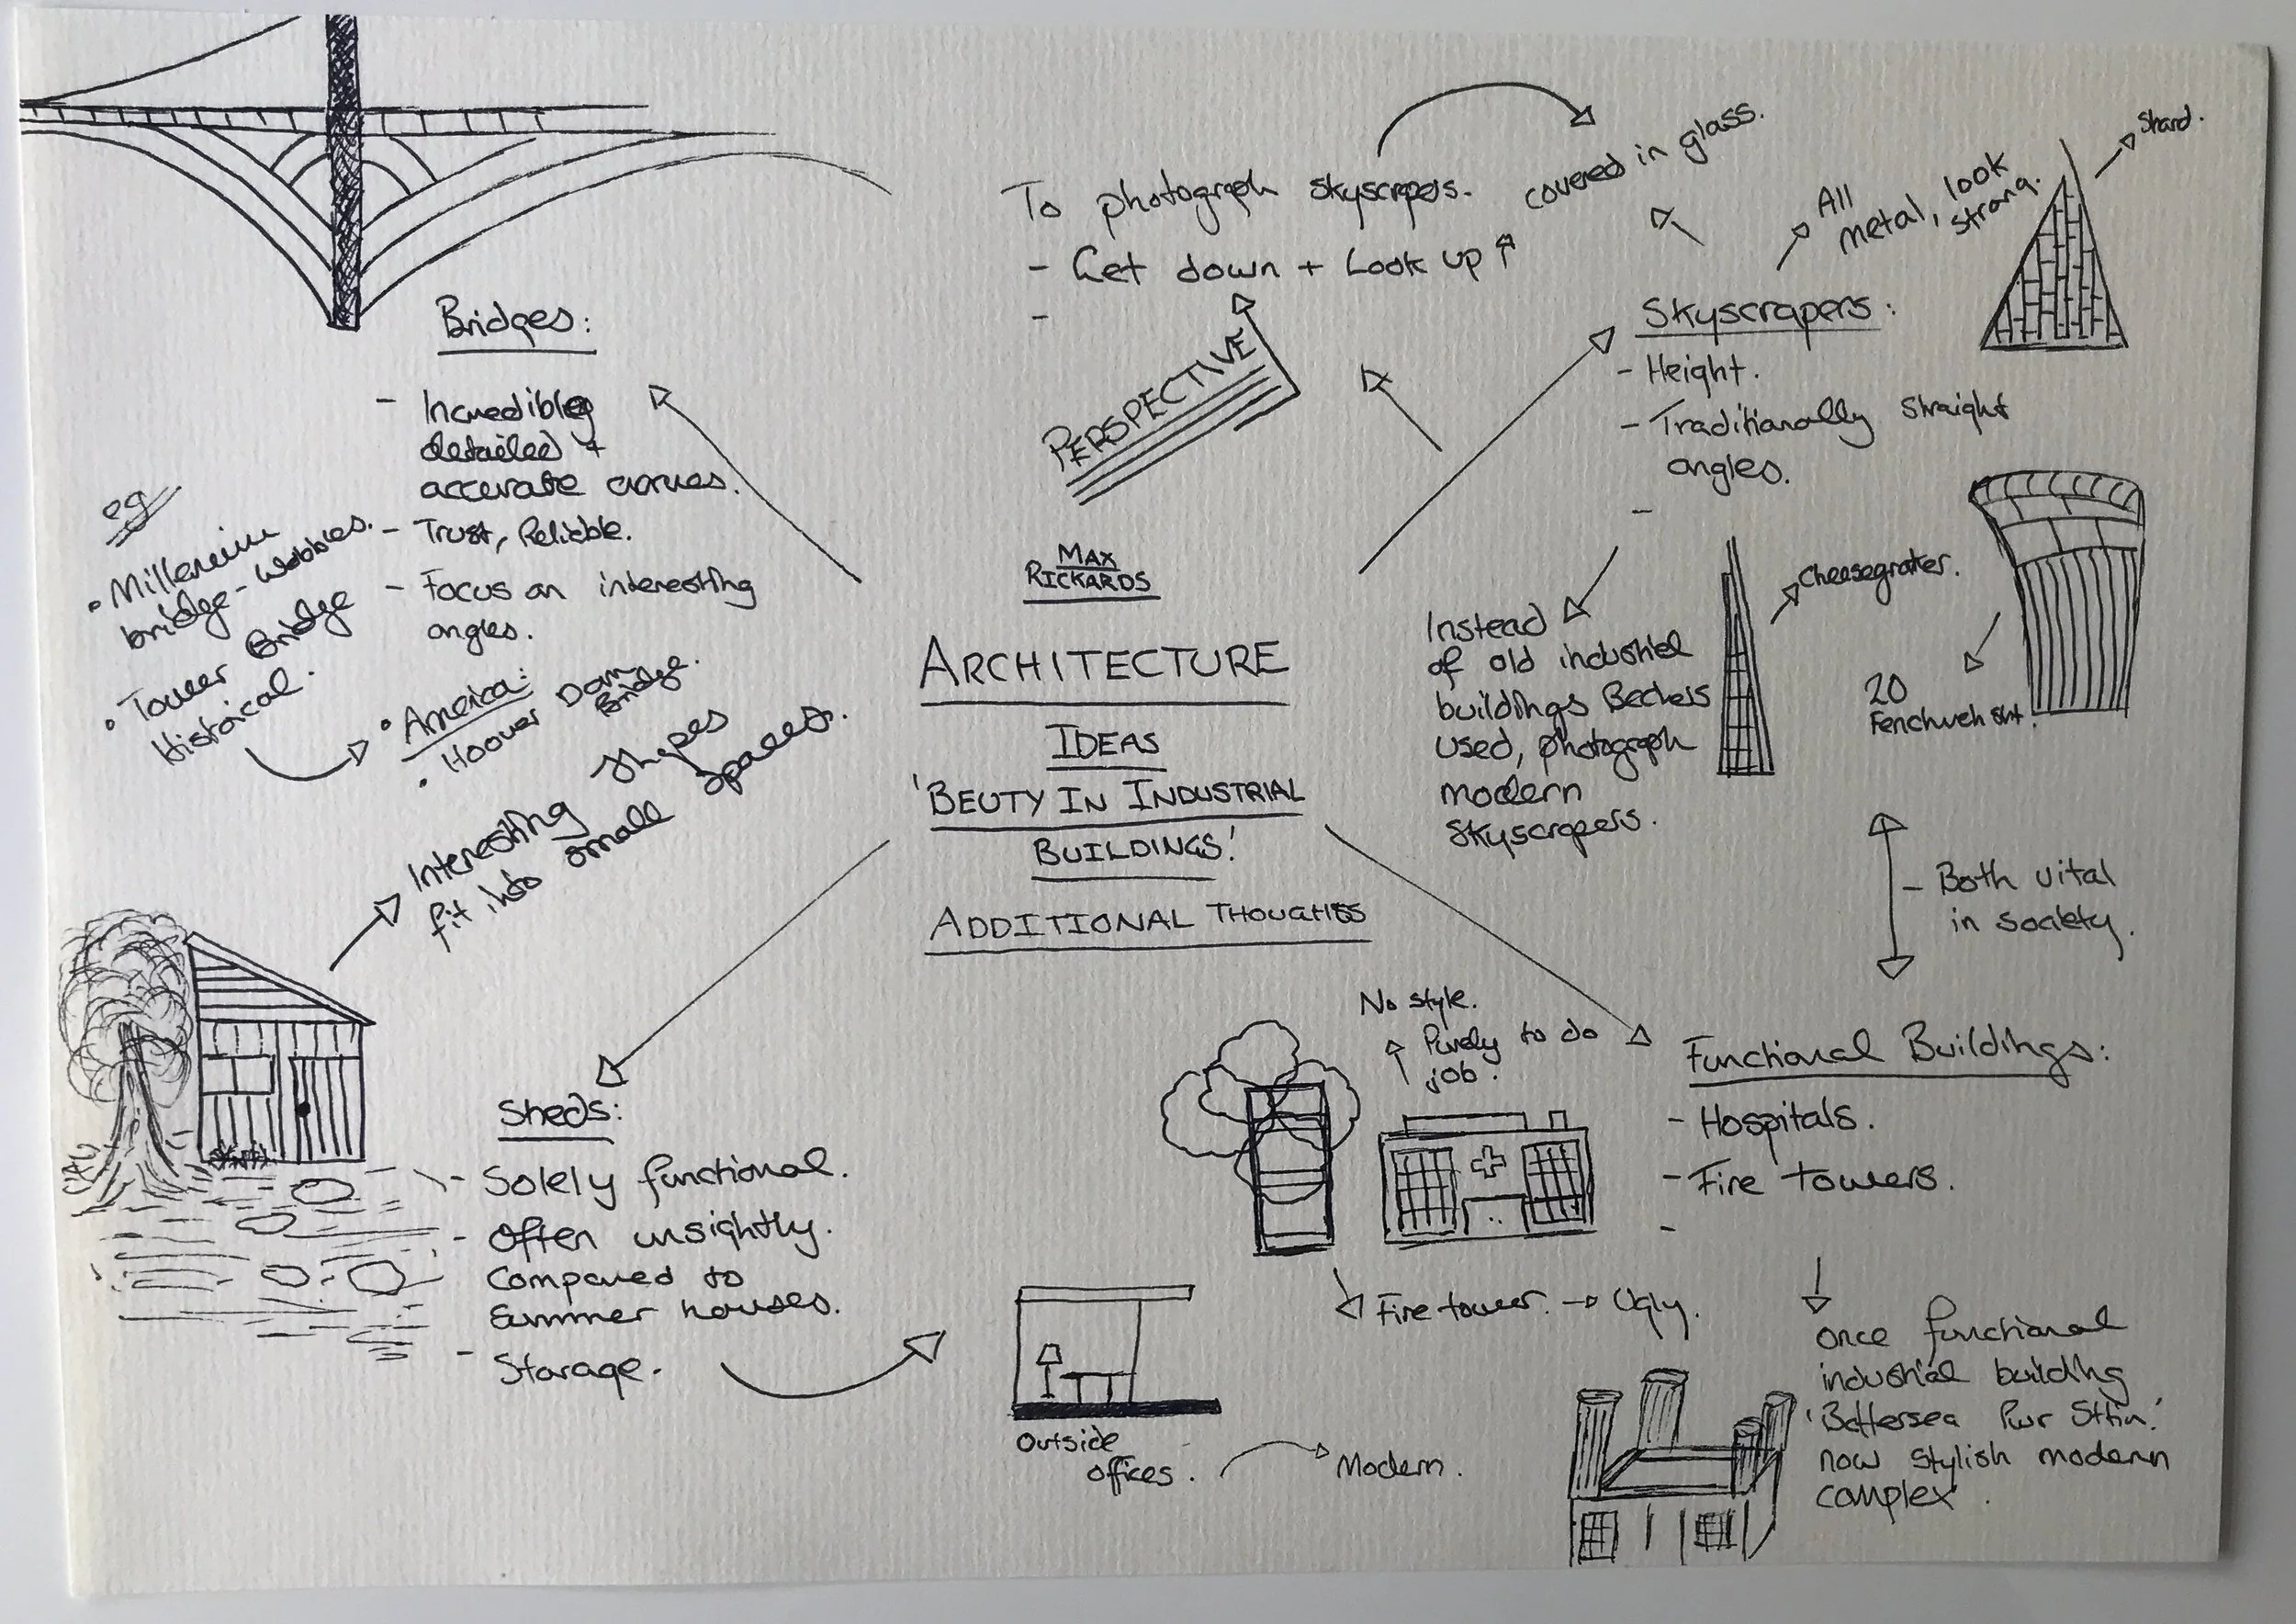 MAX
RICKARDS
ARCHITECTURE
IDEAS
'BEUTY IN INDUSTRIAL
BUILDINGS.'
ADDITIONAL THOUGHTS
Bridges:
- Incredibley
detailed +
accurate curves.
- Trust, Reliable.
- Focus on interesting
angles.
eg
• Millenium
bridge - Wobbles.
• Tower Bridge
Historical.
• America:
• Hoover Dam
Bridge.
PERSPECTIVE
To photograph skyscrapers.
- Get down + Look up
-
covered in glass.
All
metal, look
strong.
Shard.
Skyscrapers:
- Height.
- Traditionally straight
angles.
-
Instead
of old industrial
buildings Bechers
used, photograph
modern
skyscrapers.
Cheesegrater.
20
Fenchurch Strt.
- Both vital
in society.
Interesting shapes
fit into small spaces.
Sheds:
- Solely functional.
- Often unsightly.
Compared to
Summer houses.
- Storage.
Outside
offices.
Modern.
Functional Buildings:
- Hospitals.
- Fire towers.
-
No style.
Purely to do
job.
Fire tower. → Ugly.
Once functional
industrial building
'Battersea Pwr Sttin.'
now stylish modern
complex.